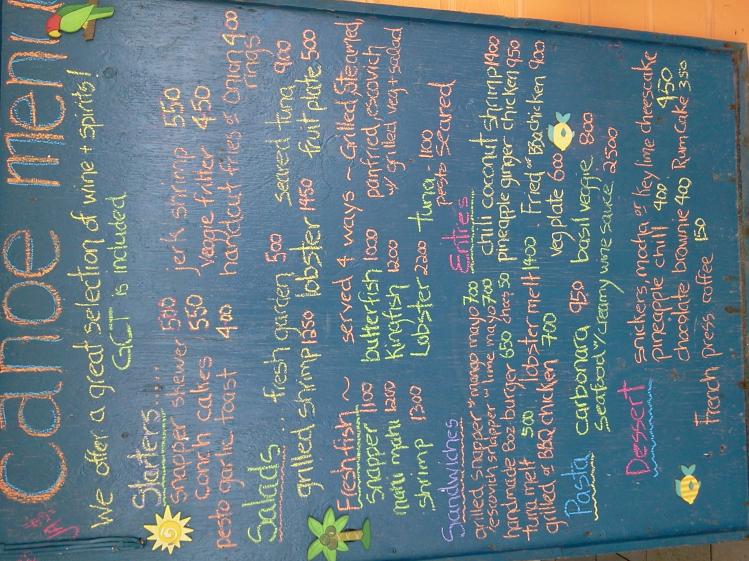 Canoe menu
We offer a great selection of wine + spirits!
GCT is included
Starters....
snapper skewer 500 jerk shrimp 550
conch cakes 550 veggie fritter 450
pesto garlic toast 400 handcut fries or onion rings 400
Salads... fresh garden 500 seared tuna 900
grilled shrimp 1350 lobster 1950 fruit plate 500
Fresh fish ~ served 4 ways ~ Grilled, Steamed,
snapper 1100 butterfish 1000 panfried, escovich
mahi mahi 1200 Kingfish 1200 w/ grilled veg + salad
shrimp 1300 Lobster 2200 tuna - 1100
pesto seared
Sandwiches Entries
grilled snapper w/ mango mayo 700 chili coconut shrimp 1400
escovich snapper w/ lime mayo 700 pineapple ginger chicken 950
handmade 8oz burger 650 cheese 50 Fried or BBQ chicken 900
tuna melt 500 lobster melt 1400 veg plate 600
grilled or BBQ chicken 700
Pasta carbonara 950 basil veggie 800
Seafood w/ creamy wine sauce 2500
Dessert snickers, mocha or Key lime cheesecake 450
pineapple chill 400
chocolate brownie 400 Rum Cake 350
French press coffee 150